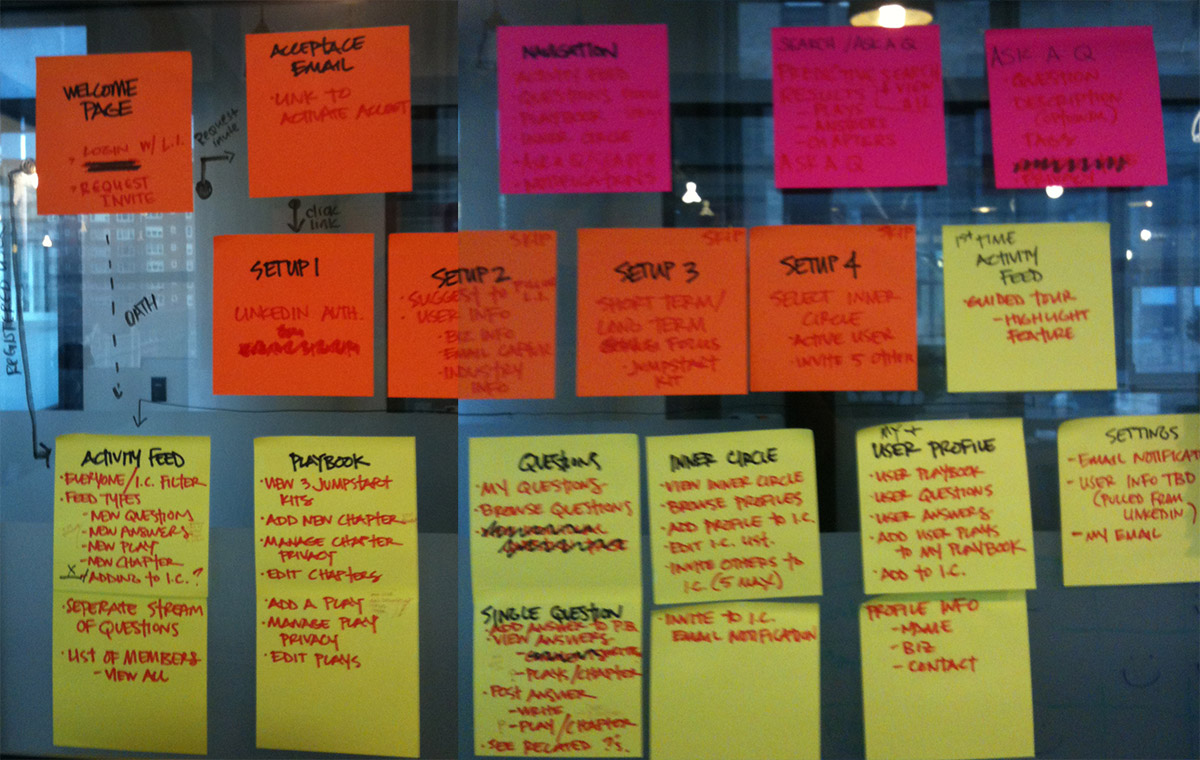 WELCOME
PAGE
LOGIN W/ L.I.
REQUEST
INVITE
Request
invite
ACCEPTACE
EMAIL
· LINK TO
ACTIVATE ACCOUNT
click
link
NAVIGATION
ACTIVITY FEED
QUESTIONS
PLAYBOOK
INNER CIRCLE
NOTIFICATIONS
SEARCH / ASK A Q
PREDICTIVE SEARCH
RESULTS
VIEW
ALL
PLAYS
- ANSWERS
- CHAPTERS
ASK A Q
ASK A Q
· QUESTION
DESCRIPTION
(OPTIONAL)
TAGS
· PRIVACY
OATH
SETUP 1
LINKEDIN AUTH.
SKIP
SETUP 2
· SUGGEST TO
L.I.
· USER INFO
· BIZ INFO
· INDUSTRY
INFO
SKIP
SETUP 3
SHORT TERM/
LONG TERM
FOCUS
· JUMPSTART
KIT
SKIP
SETUP 4
SELECT INNER
CIRCLE
· ACTIVE USER
· INVITE 5 OTHER
1ST TIME
ACTIVITY
FEED
· GUIDED TOUR
- HIGHLIGHT
FEATURE
ACTIVITY FEED
· EVERYONE/I.C. FILTER
· FEED TYPES
- NEW QUESTION
- NEW ANSWERS
- NEW PLAY
- NEW CHAPTER
X
ADDING TO I.C. ?
· SEPERATE STREAM
OF QUESTIONS
· LIST OF MEMBERS
- VIEW ALL
PLAYBOOK
· VIEW 3 JUMPSTART
KITS
· ADD NEW CHAPTER
· MANAGE CHAPTER
PRIVACY
· EDIT CHAPTERS
· ADD A PLAY
· MANAGE PLAY
PRIVACY
· EDIT PLAYS
QUESTIONS
· MY QUESTIONS
· BROWSE QUESTIONS
SINGLE QUESTION
· ADD ANSWER TO P.B
· VIEW ANSWERS
- PLAYS/CHAPTER
· POST ANSWER
- WRITE
- PLAY/CHAPTER
· SEE RELATED ?'s.
INNER CIRCLE
· VIEW INNER CIRCLE
· BROWSE PROFILES
· ADD PROFILE TO I.C.
· EDIT I.C. LIST.
· INVITE OTHERS TO
I.C. (5 MAX)
· INVITE TO I.C.
EMAIL NOTIFICATION
MY +
USER PROFILE
· USER PLAYBOOK
· USER QUESTIONS
· USER ANSWERS
· ADD USER PLAYS
TO MY PLAYBOOK
· ADD TO I.C.
PROFILE INFO
- NAME
- BIZ
- CONTACT
SETTINGS
- EMAIL NOTIFICAT
- USER INFO TBD
(PULLED FROM
LINKEDIN)
- MY EMAIL